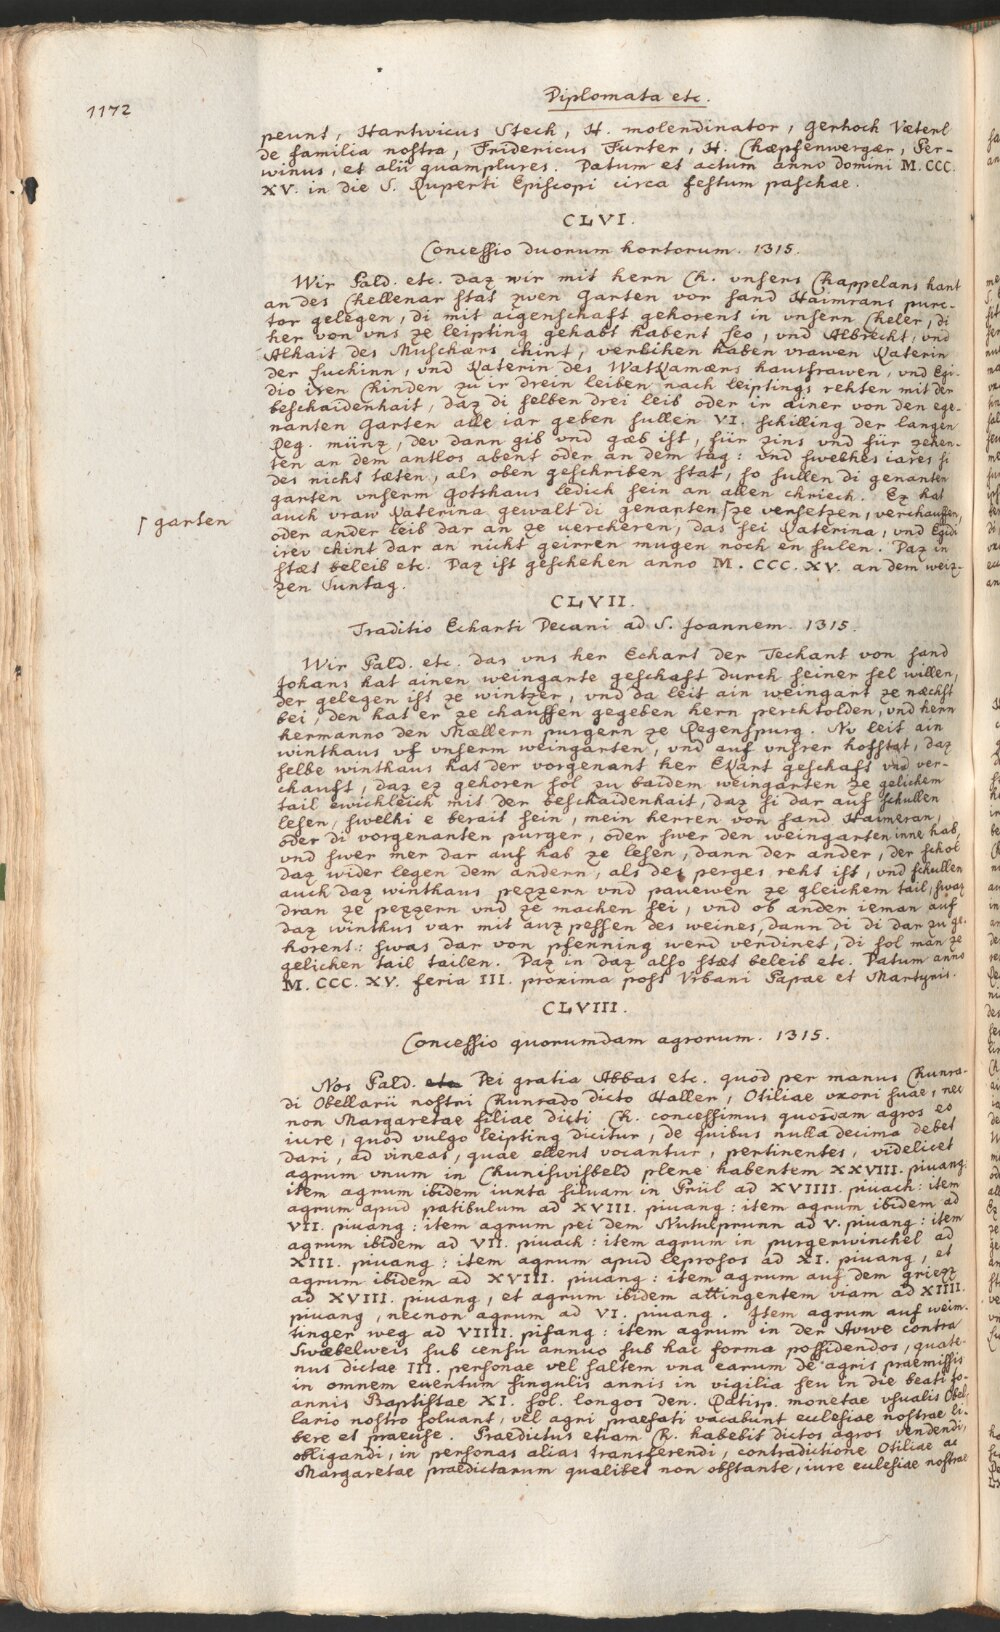 1172
Diplomata etc.
peunt, Hartwicus Stech, H. molendinator, Gerhoch Væterl
de familia nostra, Fridericus Furter, H. Chæpfenwerger, Per-
winus, et alii quamplures. Datum et actum anno domini M.CCC.
XV. in die S. Ruperti Episcopi circa festum paschae.
CLVI.
Concessio duorum hortorum. 1315.
Wir Bald. etc. daz wir mit hern Ch. vnsers Chappelans hant
an des Chellenar stat zven Garten vor sand Haimrans purc-
tor gelegen, di mit aigenschaft gehorent in vnsern Cheler, di
her von vns ze leipting gehabt habent seo, vnd Albrecht, vnd
Alhait des Muschærs chint, verlihen haben vrawen Katerin
der Fuchinn, vnd Katerin des Watkamærs hausfrawen, vnd Egi-
dio iren Chinden zu ir drein leiben nach leiptings rehten mit der
beschaidenhait, daz di selben drei leib oder ir ainer von den ege-
nanten Garten alle iar geben sullen VI. schilling der langen
Reg. münz, dev dann gib vnd gæb ist, für zins vnd für zehen-
ten an dem antlos abent oder an dem tag: vnd swelhes iares si
des nicht tæten, als oben geschriben stat, so sullen di genanten
garten vnserm Gotshaus ledich sein an allen chriech. Ez hat
auch vraw Katerina gewalt di genanten ſ ze versetzen, verchauffen,
ſ garten
oder ander leib dar an ze vercheren, das sei Katerina, vnd Egidi
irev chint dar an nicht geirren mugen noch en sulen. Daz in
stæt beleib etc. Daz ist geschehen anno M. CCC. XV. an dem weiz-
zen Suntag.
CLVII.
Traditio Echarti Decani ad S. Joannem. 1315.
Wir Bald. etc. das vns her Echart der Techant von sand
Johans hat ainen weingarte geschaft durch seiner sel willen,
der gelegen ist ze wintzer, vnd da leit ain weingart ze næchst
bei, den hat er ze chauffen gegeben hern perchtolden, vnd hern
hermanno den Mællern purgern ze Regenspurg. Nv leit ain
winthaus vf vnserm weingarten, vnd auf vnsrer hofstat, daz
selbe winthaus hat der vorgenant her Ekart geschaft vnd ver-
chauft, daz ez gehoren sol zu baidem weingarten ze gelichem
tail ewichleich mit der beschaidenhait, daz si dar auf schullen
lesen, swelhi e berait sein, mein herren von sand Haimeran,
oder di vorgenanten purger, oder swer den weingarten inne hab,
vnd swer mer dar auf hab ze lesen, dann der ander, der schol
daz wider legen dem andern, als des perges reht ist, vnd schullen
auch daz winthaus pezzern vnd pauewen ze gleichem tail, swaz
dran ze pezzern vnd ze machen sei, vnd ob ander ieman auf
daz winthus var mit auzpessen des weines, dann di di dar zu ge-
horent: swas dar von pfenning werd verdinet, di sol man ze
gelichen tail tailen. Daz in daz also stæt beleib etc. Datum anno
M. CCC. XV. feria III. proxima post Vrbani Papae et Martyris.
CLVIII.
Concessio quorumdam agrorum. 1315.
Nos Bald. etc Dei gratia Abbas etc. quod per manus Chunra-
di Obellarii nostri Chunrado dicto Haller, Otiliae vxori suae, nec
non Margaretae filiae dicti Ch. concessimus quosdam agros eo
iure, quod vulgo leipting dicitur, de quibus nulla decima debet
dari, ad vineas, quae ellent vocantur, pertinentes, videlicet
agrum vnum in Chuniswisbeld plene habentem XXVIII. pivang:
item agrum ibidem iuxta siluam in Prül ad XVIIII. pivach: item
agrum apud patibulum ad XVIII. pivang: item agrum ibidem ad
VII. pivang: item agrum pei dem Nutulprunn ad V. pivang: item
agrum ibidem ad VII. pivach: item agrum in purgerwinchel ad
XIII. pivang: item agrum apud leprosos ad XI. pivang, et
agrum ibidem ad XVIII. pivang: item agrum auf dem griezz
ad XVIII. pivang, et agrum ibidem attingentem viam ad XIIII.
pivang, necnon agrum ad VI. pivang. Item agrum auf weim-
tinger weg ad VIIII. pifang: item agrum in der Avwe contra
Swæbelweis sub censu annuo sub hac forma possidendos, quate-
nus dictae III. personae vel saltem vna earum de agris praemissis
in omnem euentum singulis annis in vigilia seu in die beati Jo-
annis Baptistae XI. sol. longos den. Ratisp. monetae vsualis Obel-
lario nostro soluant, vel agri praefati vacabunt ecclesiae nostrae li-
bere et praecise. Praedictus etiam Ch. habebit dictos agros vendendi,
obligandi, in personas alias transferendi, contradictione Otiliae ac
Margaretae praedictarum qualibet non obstante, iure ecclesiae nostrae